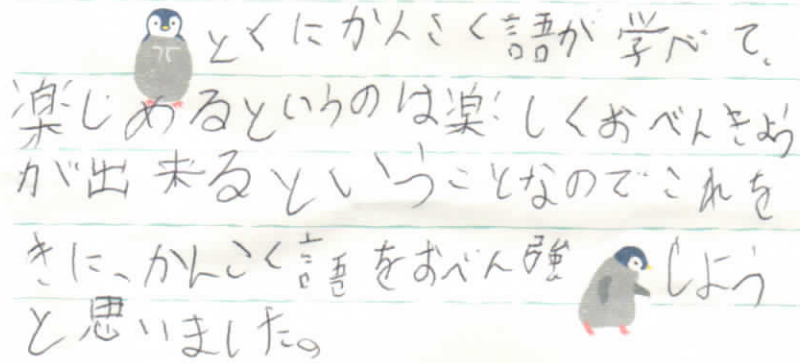 とくにかんこく語が学べて、
楽じめるというのは楽しくおべんきよう
が出来るということなのでこれを
きに、かんこく語をおべん強しよう
と思いました。